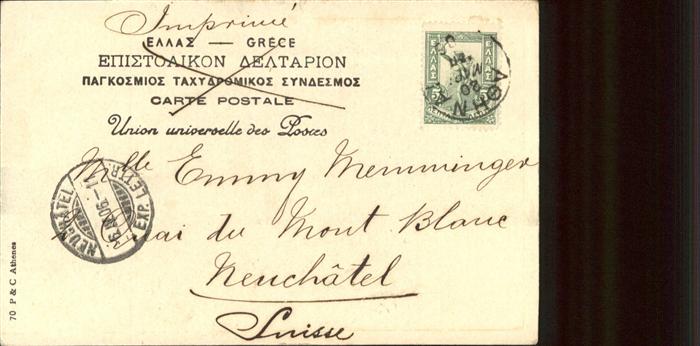 Imprimé
ΕΛΛΑΣ — GRÈCE
ΕΠΙΣΤΟΛΙΚΟΝ ΔΕΛΤΑΡΙΟΝ
ΠΑΓΚΟΣΜΙΟΣ ΤΑΧΥΔΡΟΜΙΚΟΣ ΣΥΝΔΕΣΜΟΣ
CARTE POSTALE
Union universelle des Postes
ΕΛΛΑΣ
ΕΛΛΑΣ
5
5
ΑΘΗΝΑΙ
Mlle Emmy Memminger
Quai du Mont Blanc
Neuchâtel
Suisse
NEUCHÂTEL
EXP. LETTR.
70 P & C Athènes